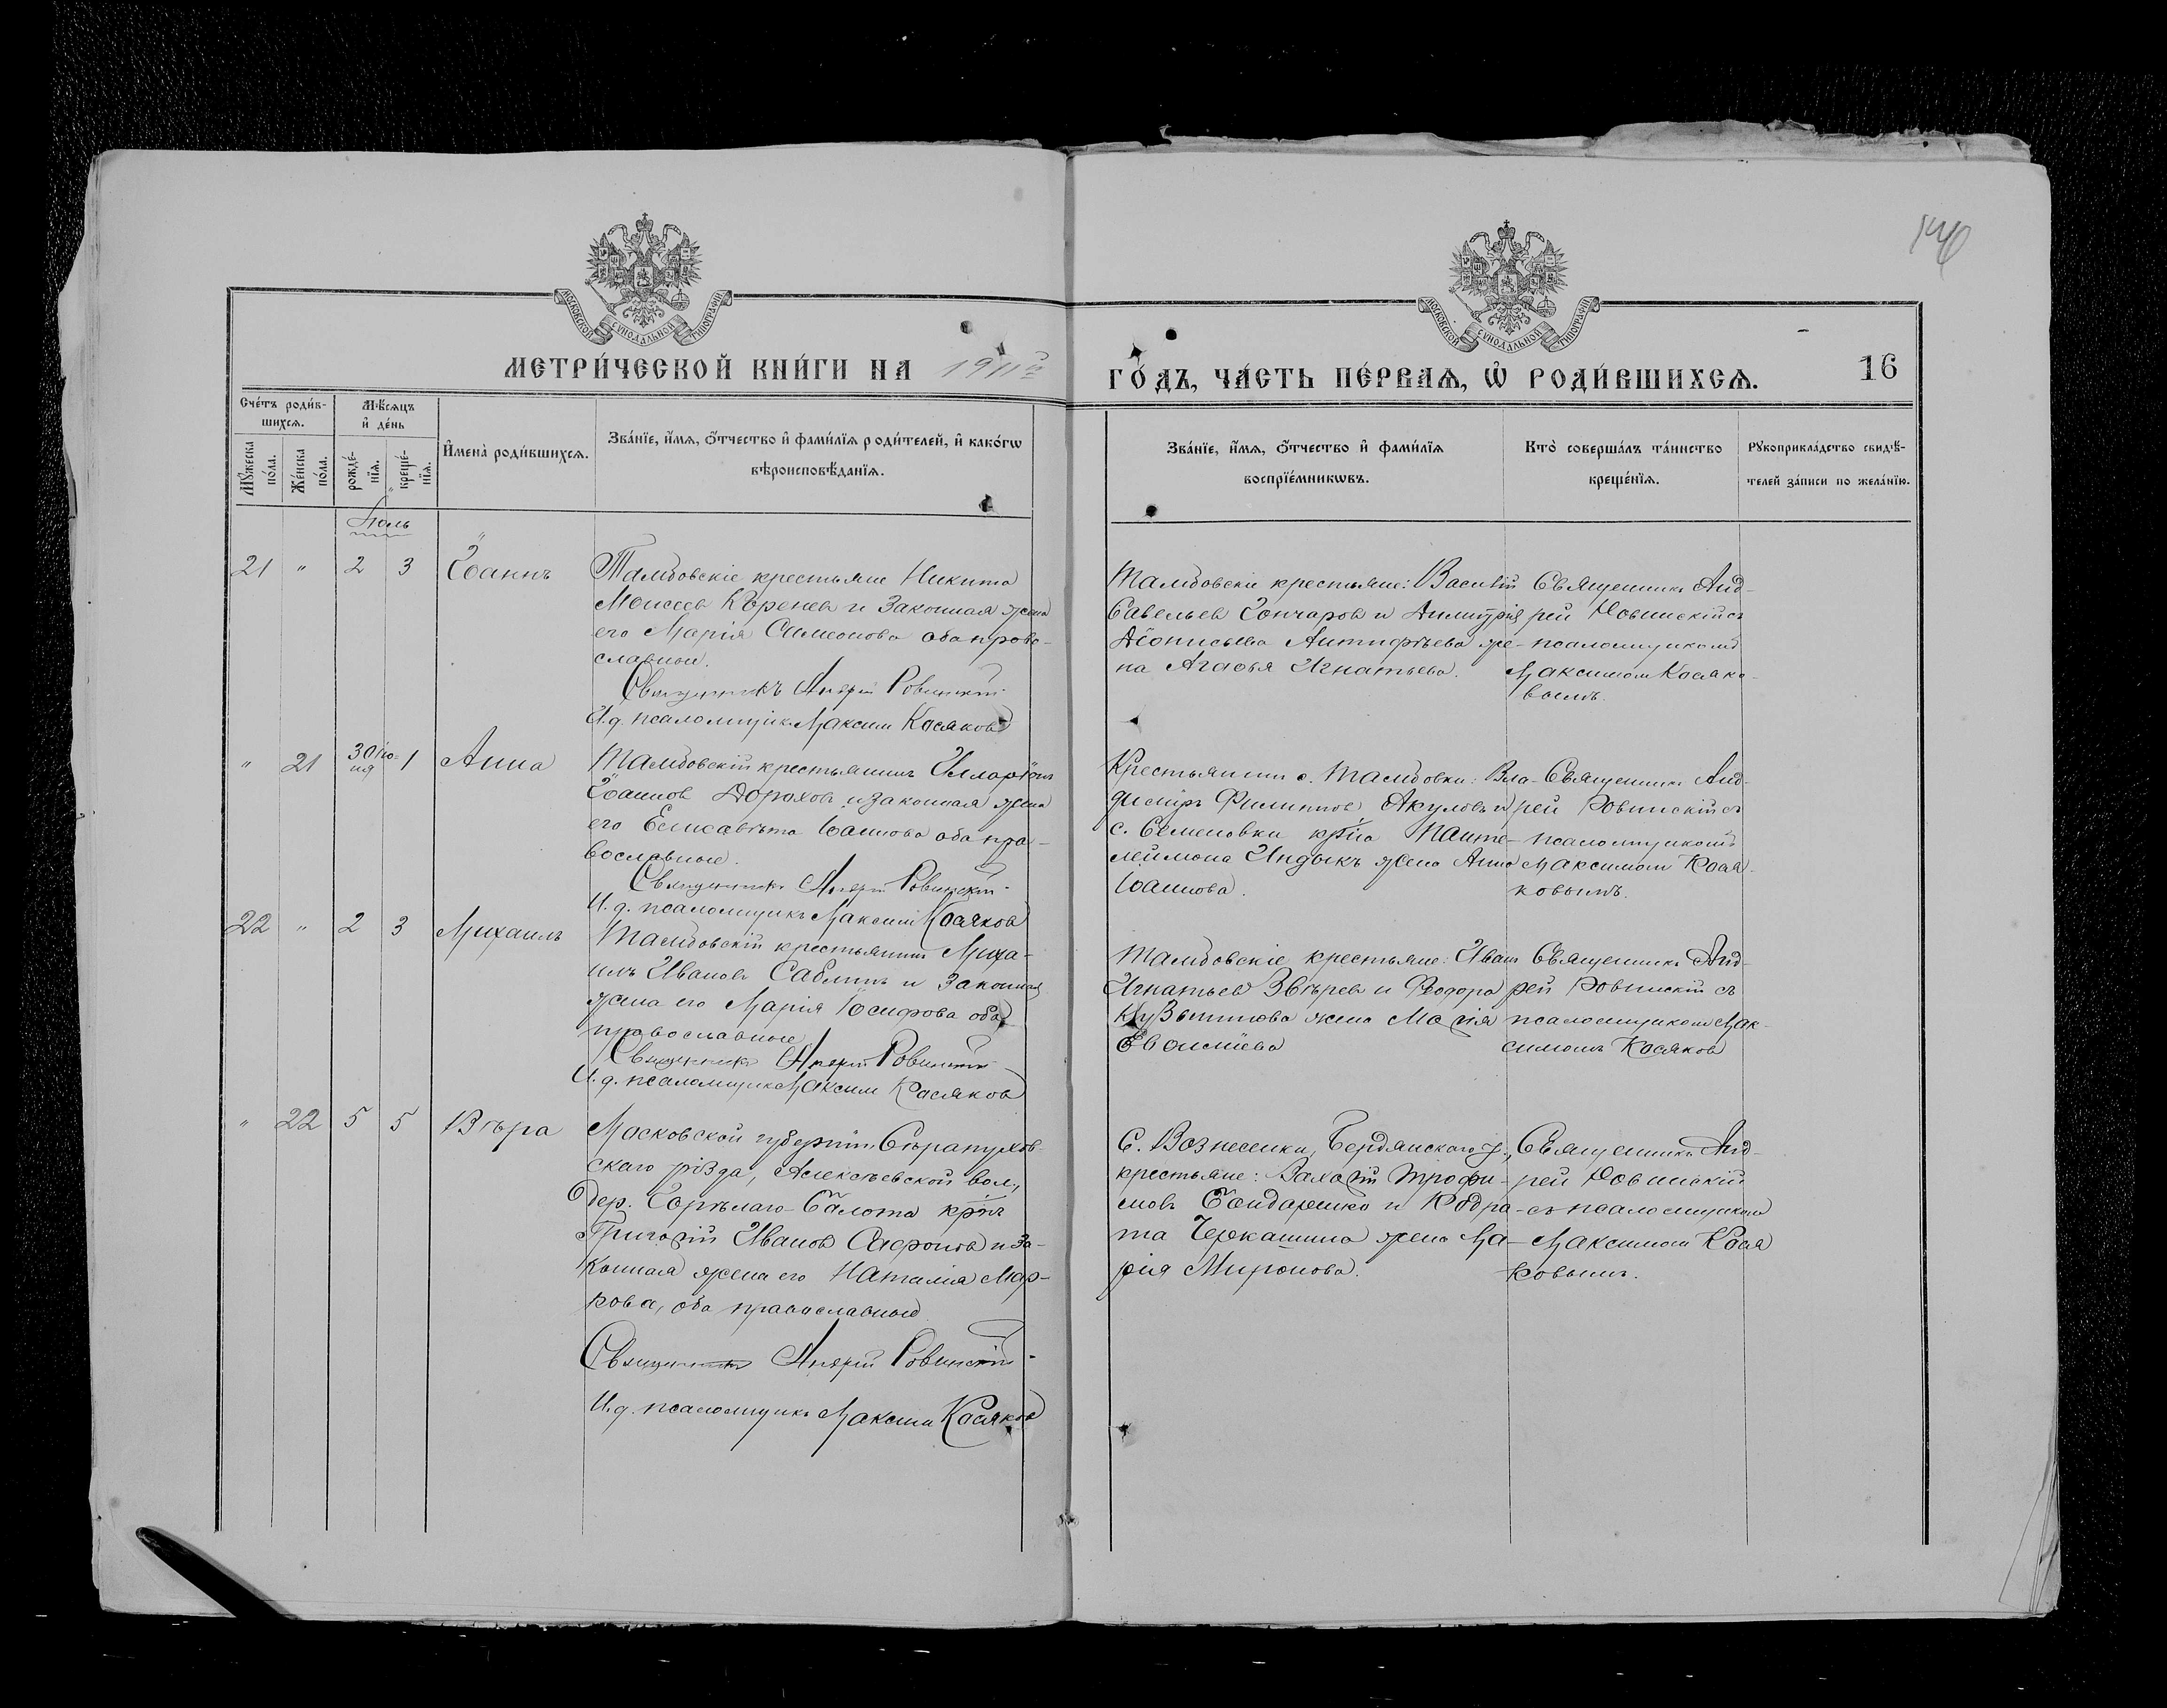 МОСКОВСКОЙ СѴНОДАЛЬНОЙ ТИПОГРАФІИ
МОСКОВСКОЙ СѴНОДАЛЬНОЙ ТИПОГРАФІИ
МЕТРИ́ЧЕСКОЙ КНИ́ГИ НА 1911й
ГО́ДЪ, ЧА́СТЬ ПЕ́РВАѦ, Ѽ РОДИ́ВШИХСѦ.
16
Сче́тъ роди́в-
шихсѧ.
Мꙋ́жеска по́ла.
Же́нска по́ла.
Мѣ́сѧцъ
и҆ де́нь
рожде́-нїѧ.
креще́-нїѧ.
И҆мена̀ роди́вшихсѧ.
Зва́нїе, и҆́мѧ, ѻ҆́тчество и҆ фами́лїѧ роди́телей, и҆ како́гѡ
вѣроисповѣ́данїѧ.
Зва́нїе, и҆́мѧ, ѻ҆́тчество и҆ фами́лїѧ
воспрїе́мникѡвъ.
Кто̀ соверша́лъ та́инство
креще́нїѧ.
Рꙋкоприкла́дство свидѣ́-
телей за́писи по жела́нїю.
Іюль
21 " 2 3 Іоаннъ
Тамбовскіе крестьяне Никита
Моисеев Коренев и законная жена
его Марія Симеонова оба право-
славные.
Священникъ Андрей Ровинскій
И. д. псаломщик Максим Косяков
Тамбовскіе крестьяне: Василій
Савельев Гончаров и Димитрія
Діонисьева Антифѣева же-
на Агафья Игнатьева.
Священникъ Анд-
рей Ровинскій съ
псаломщикомъ
Максимом Косяко-
вымъ.
" 21 30 Іюня 1 Анна
Тамбовскій крестьянинъ Илларіон
Іоаннов Дорохов и законная жена
его Елисавѣта Іоаннова оба пра-
вославные.
Священникъ Андрей Ровинскій
И. д. псаломщикъ Максим Косяков
Крестьянин с. Тамбовки: Вла-
димір Филиппов Акулов и
с. Семеновки кр-на Панте-
леймона Индыкъ жена Анна
Іоаннова.
Священникъ Анд-
рей Ровинскій съ
псаломщикомъ
Максимом Кося-
ковымъ.
22 " 2 3 Михаилъ
Тамбовскій крестьянин Миха-
илъ Иванов Саблинъ и законная
жена его Марія Іосифова оба
православные
Священникъ Андрей Ровинскій
И. д. псаломщик Максим Косяков
Тамбовскіе крестьяне: Иван
Игнатьев Звѣрев и Феодора
Кузьминова жена Марія
Священникъ Анд-
рей Ровинскій съ
псаломщиком Мак-
симомъ Косяков
" 22 5 5 Вѣра
Московской губерніи, Сѣрапухов-
скаго уѣзда, Алексѣевской вол.,
дер. Горѣлаго-Балота кр-нъ
Григорій Иванов Сафонов и за-
конная жена его Наталія Мар-
кова, оба православные
Священникъ Андрей Ровинскій
И. д. псаломщикъ Максим Косяков
С. Вознесенки, Бердянскаго у.,
крестьяне: Захарій Трофи-
мовъ Бондаренко и Кодра-
та Черкашина жена Ма-
рия Миронова.
Священникъ Анд-
рей Ровинскій
съ псаломщиком
Максимом Кося
ковымъ.